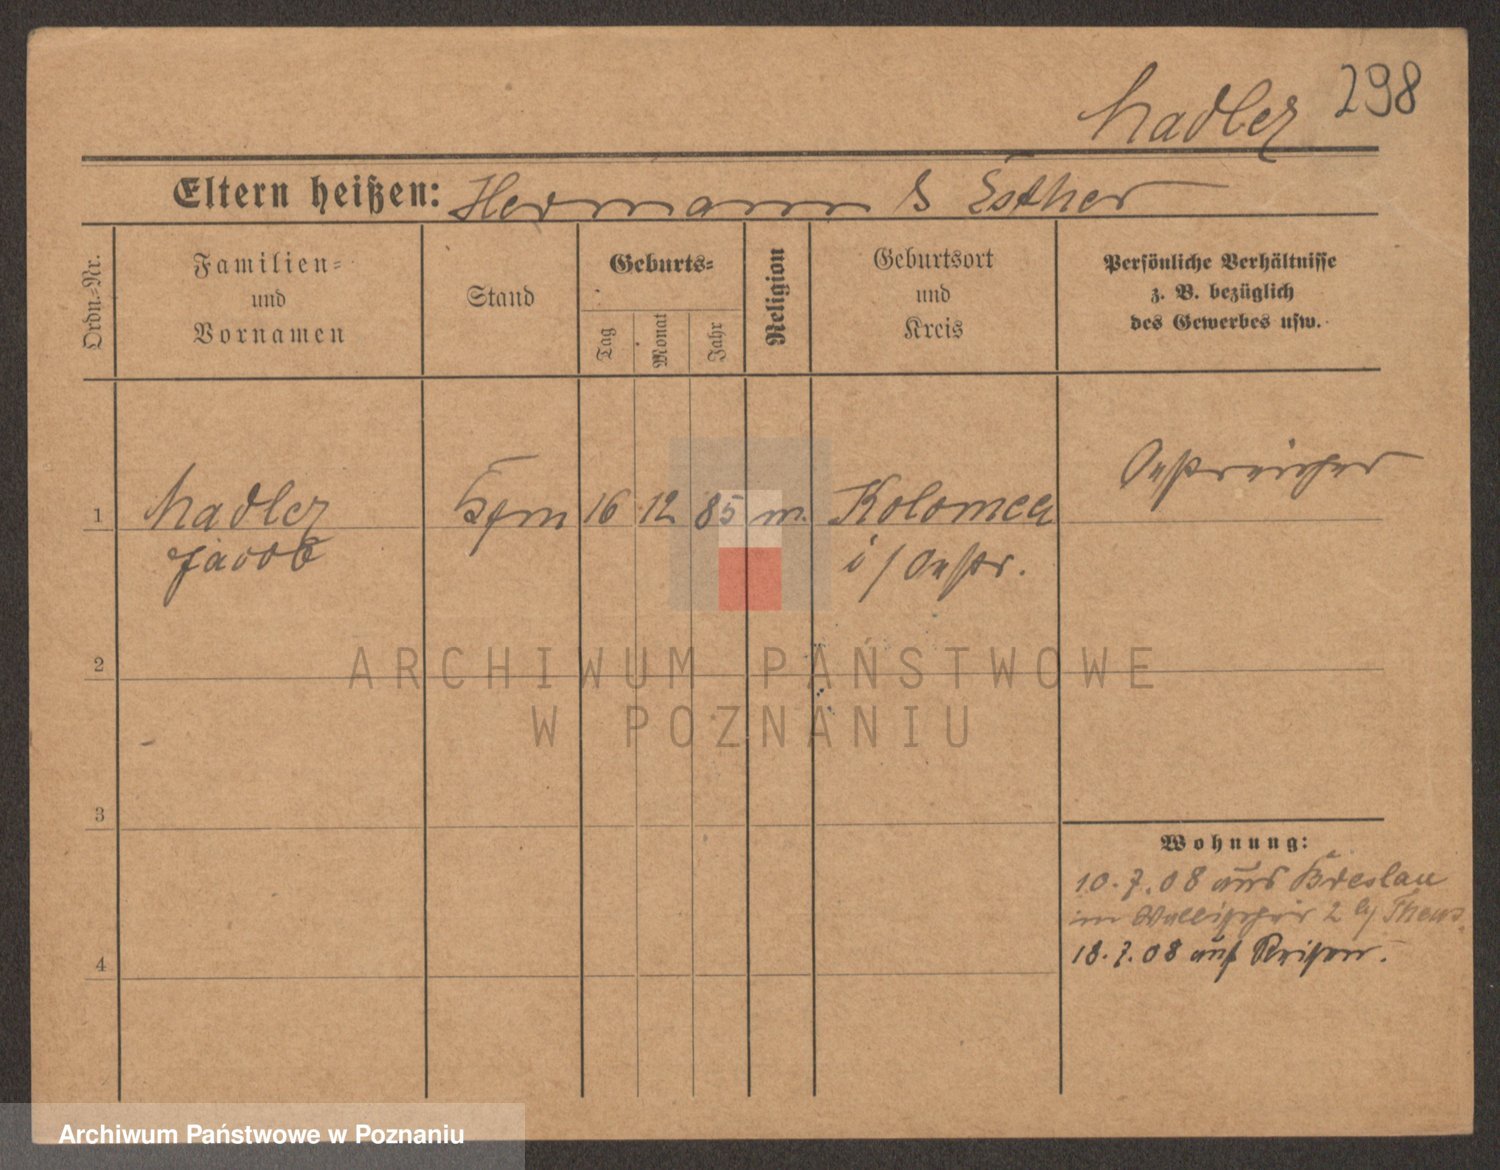 Nadler 298
Eltern heißen: Hermann & Esther
Ordn.-Nr.
Familien-
und
Vornamen
Stand
Geburts-
Tag
Monat
Jahr
Religion
Geburtsort
und
Kreis
Persönliche Verhältnisse
z. B. bezüglich
des Gewerbes usw.
1 Nadler 16 12 85 m. Kolomea Oestreicher
Jacob i/Oestr.
2
3
4
Wohnung:
10.7.08 aus Breslau
in Wallischei 2 b/
18.7.08 auf Reisen.
ARCHIWUM PAŃSTWOWE
W POZNANIU
Archiwum Państwowe w Poznaniu